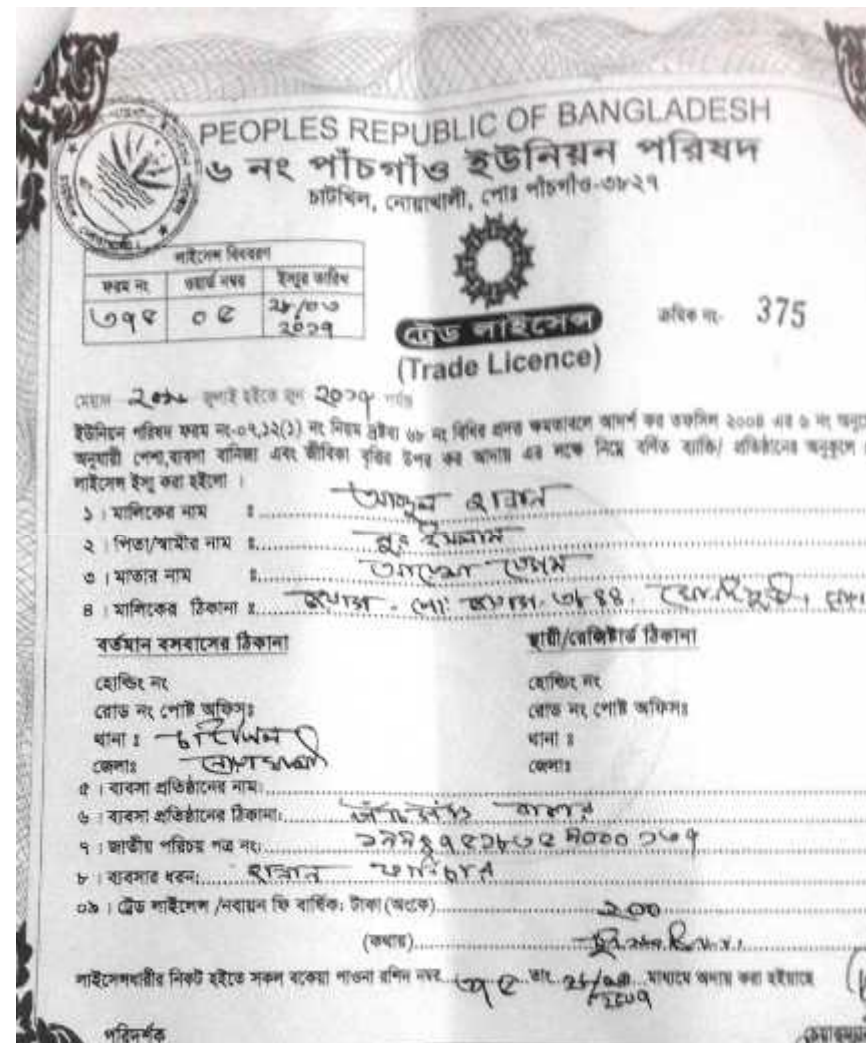 PEOPLES REPUBLIC OF BANGLADESH
৬ নং পাঁচগাঁও ইউনিয়ন পরিষদ
চাটখিল, নোয়াখালী, পোঃ পাঁচগাঁও-৩৮২৭
লাইসেন্স বিবরণ
ফরম নং ওয়ার্ড নম্বর ইস্যুর তারিখ
৩৭৫ ০৫ ২৮/০৩ ২০১৭
ট্রেড লাইসেন্স
(Trade Licence)
ক্রমিক নং- 375
মেয়াদ ২০১৬ জুলাই হইতে জুন ২০১৭ পর্যন্ত
ইউনিয়ন পরিষদ ফরম নং-০৭,১২(১) নং নিয়ম দ্রষ্টব্য ৬৮ নং বিধির প্রদত্ত ক্ষমতাবলে আদর্শ কর তফসিল ২০০৪ এর ৬ নং
অনুযায়ী পেশা,ব্যবসা বানিজ্য এবং জীবিকা বৃত্তির উপর কর আদায় এর লক্ষে নিম্নে বর্ণিত ব্যক্তি/ প্রতিষ্ঠানের অনুকূলে
লাইসেন্স ইস্যু করা হইলো ।
১ । মালিকের নাম ঃ আব্দুল হান্নান
২ । পিতা/স্বামীর নাম ঃ নুর ইসলাম
৩ । মাতার নাম ঃ বেগম
৪ । মালিকের ঠিকানা ঃ পোঃ
বর্তমান বসবাসের ঠিকানা স্থায়ী/রেজিষ্টার্ড ঠিকানা
হোল্ডিং নং হোল্ডিং নং
রোড নং পোষ্ট অফিসঃ রোড নং পোষ্ট অফিসঃ
থানা ঃ চাটখিল থানা ঃ
জেলাঃ নোয়াখালী জেলাঃ
৫ । ব্যবসা প্রতিষ্ঠানের নাম:
৬ । ব্যবসা প্রতিষ্ঠানের ঠিকানা: পাঁচগাঁও বাজার
৭ । জাতীয় পরিচয় পত্র নং:
৮ । ব্যবসার ধরন: হান্নান ফার্নিচার
০৯ । ট্রেড লাইসেন্স /নবায়ন ফি বার্ষিক: টাকা (অংকে) ২০০
(কথায়)
লাইসেন্সধারীর নিকট হইতে সকল বকেয়া পাওনা রশিদ নম্বর ৩৫ তাং মাধ্যমে আদায় করা হইয়াছে
পরিদর্শক